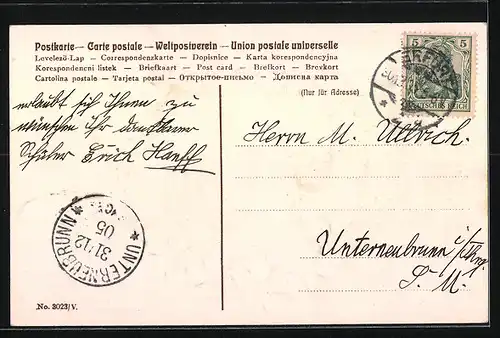 Postkarte — Carte postale — Weltpostverein — Union postale universelle
Levelező-Lap — Correspondenzkarte — Dopisnice — Karta korespondencyjna
Korespondenční lístek — Briefkaart — Post card — Brefkort — Brevkort
Cartolina postale — Tarjeta postal — Открытое-письмо — Дописна карта
(Nur für Adresse)
5 5
DEUTSCHES REICH
erlaubt sich Ihnen zu
wünschen Ihr dankbarer
Schüler Erich Hanff
Herrn M. Ullrich.
Unterneubrunn i/Thg.
S. M.
* UNTERNEUBRUNN *
31/12
05
No. 3023/V.